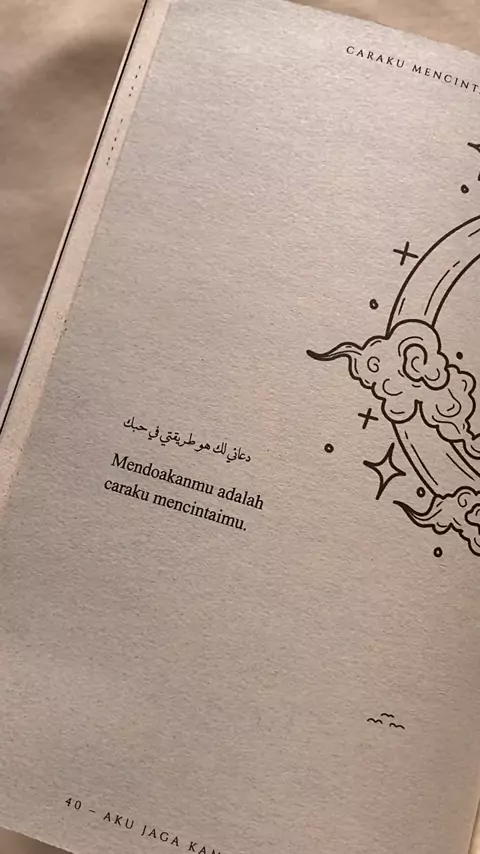 CARAKU
دعائي لك هو طريقتي في حبك
Mendoakanmu adalah
caraku mencintaimu.
40 – AKU JAGA